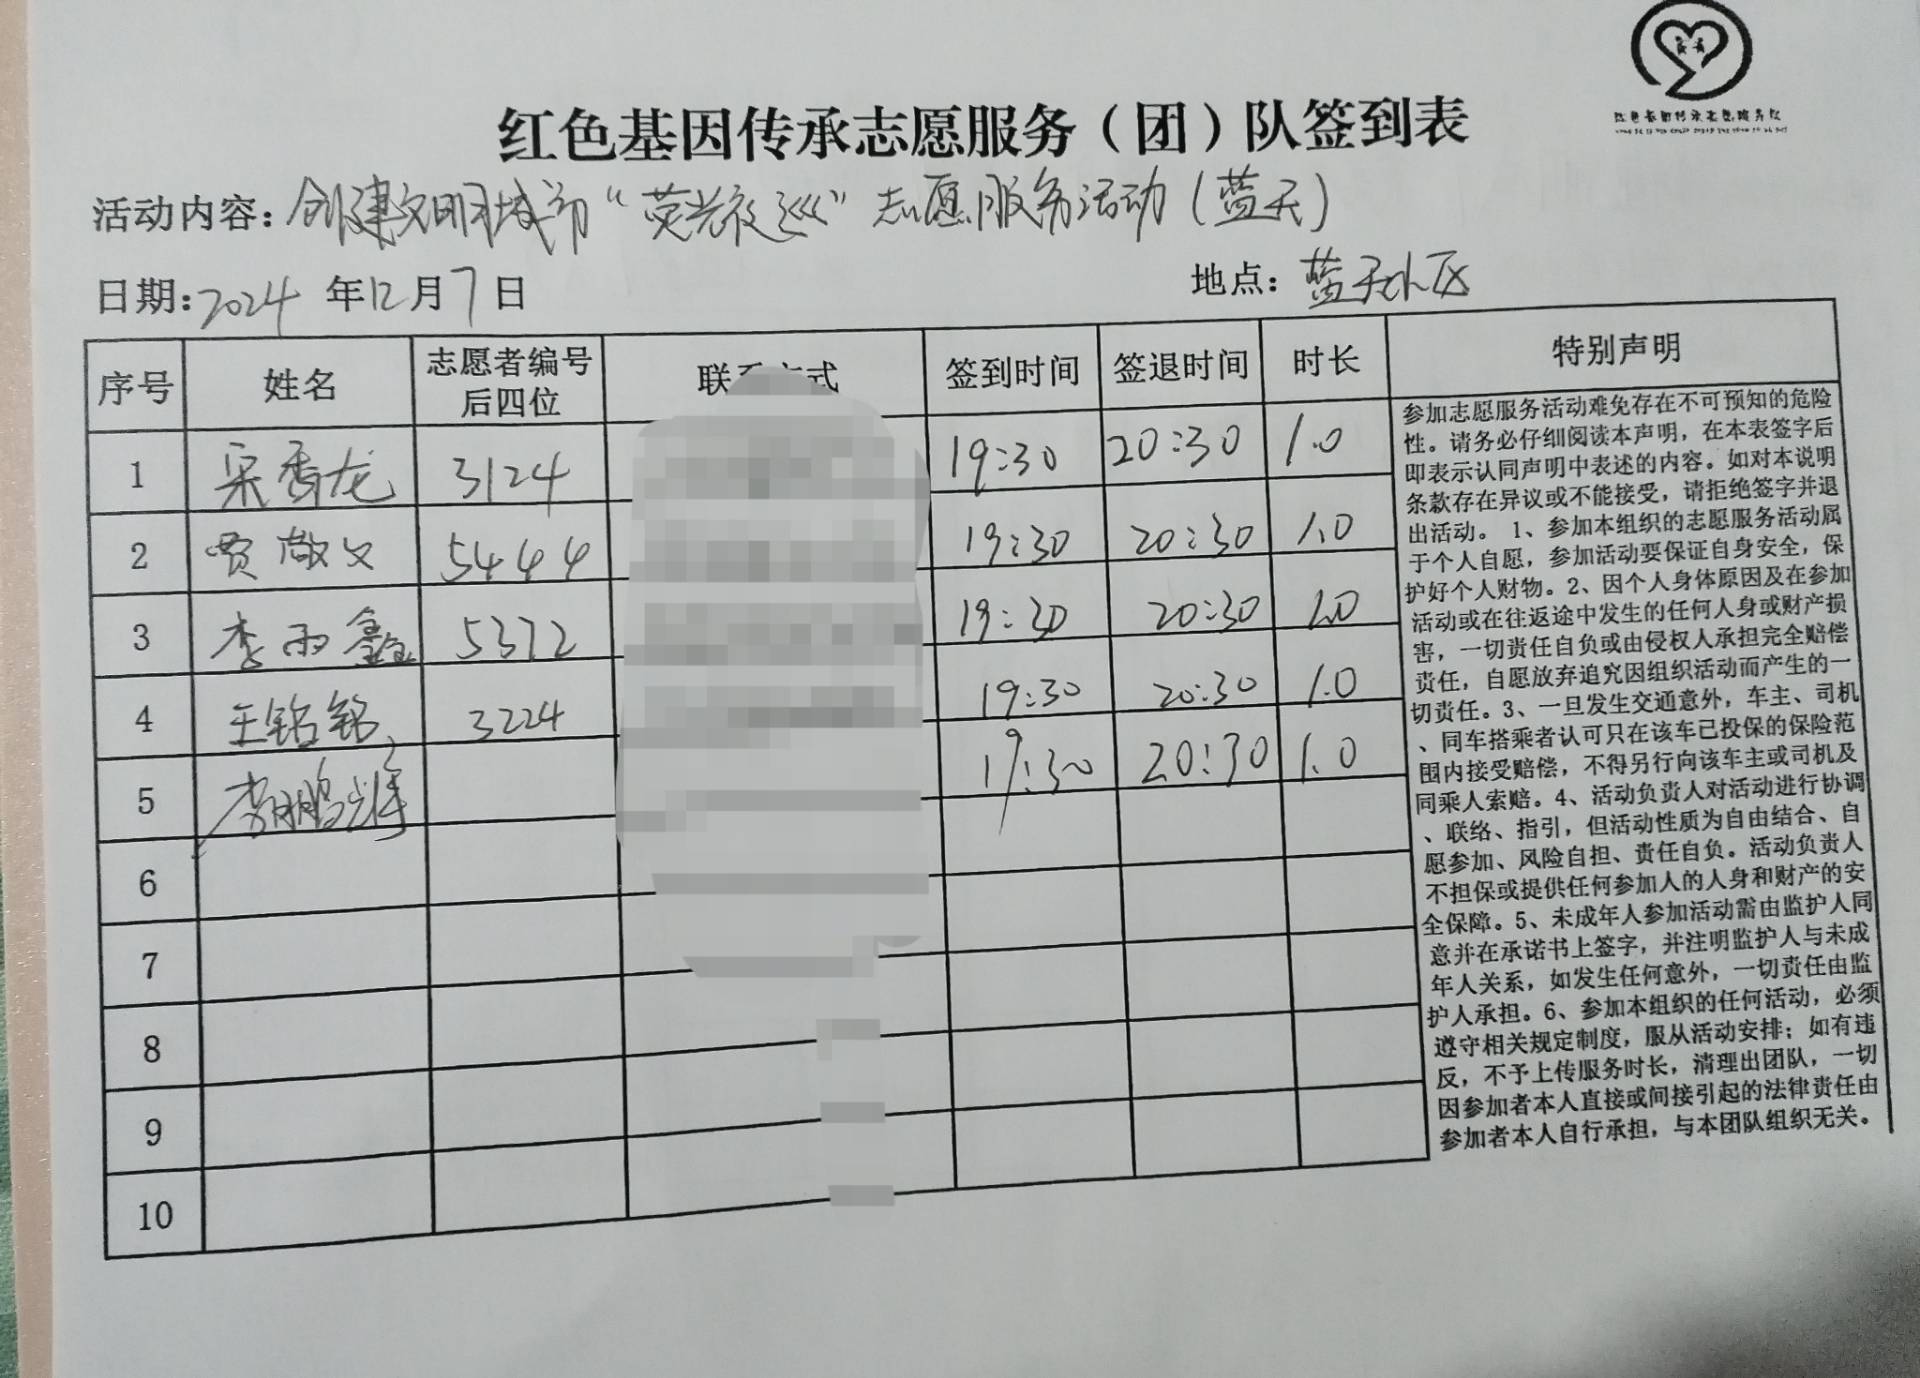 红色基因传承志愿服务队
红色基因传承志愿服务（团）队签到表
活动内容：创建文明城市“荧光夜巡”志愿服务活动（蓝天）
日期：2024年12月7日 地点：蓝天小区
序号 姓名 志愿者编号后四位 联系方式 签到时间 签退时间 时长 特别声明
1 宋香龙 3124 19:30 20:30 1.0
2 贾敬文 5444 19:30 20:30 1.0
3 李雨鑫 5372 19:30 20:30 1.0
4 王铭铭 3224 19:30 20:30 1.0
5 李鹏辉 19:30 20:30 1.0
6
7
8
9
10
参加志愿服务活动难免存在不可预知的危险
性。请务必仔细阅读本声明，在本表签字后
即表示认同声明中表述的内容。如对本说明
条款存在异议或不能接受，请拒绝签字并退
出活动。 1、参加本组织的志愿服务活动属
于个人自愿，参加活动要保证自身安全，保
护好个人财物。2、因个人身体原因及在参加
活动或在往返途中发生的任何人身或财产损
害，一切责任自负或由侵权人承担完全赔偿
责任，自愿放弃追究因组织活动而产生的一
切责任。3、一旦发生交通意外，车主、司机
、同车搭乘者认可只在该车已投保的保险范
围内接受赔偿，不得另行向该车主或司机及
同乘人索赔。4、活动负责人对活动进行协调
、联络、指引，但活动性质为自由结合、自
愿参加、风险自担、责任自负。活动负责人
不担保或提供任何参加人的人身和财产的安
全保障。5、未成年人参加活动需由监护人同
意并在承诺书上签字，并注明监护人与未成
年人关系，如发生任何意外，一切责任由监
护人承担。6、参加本组织的任何活动，必须
遵守相关规定制度，服从活动安排；如有违
反，不予上传服务时长，清理出团队，一切
因参加者本人直接或间接引起的法律责任由
参加者本人自行承担，与本团队组织无关。